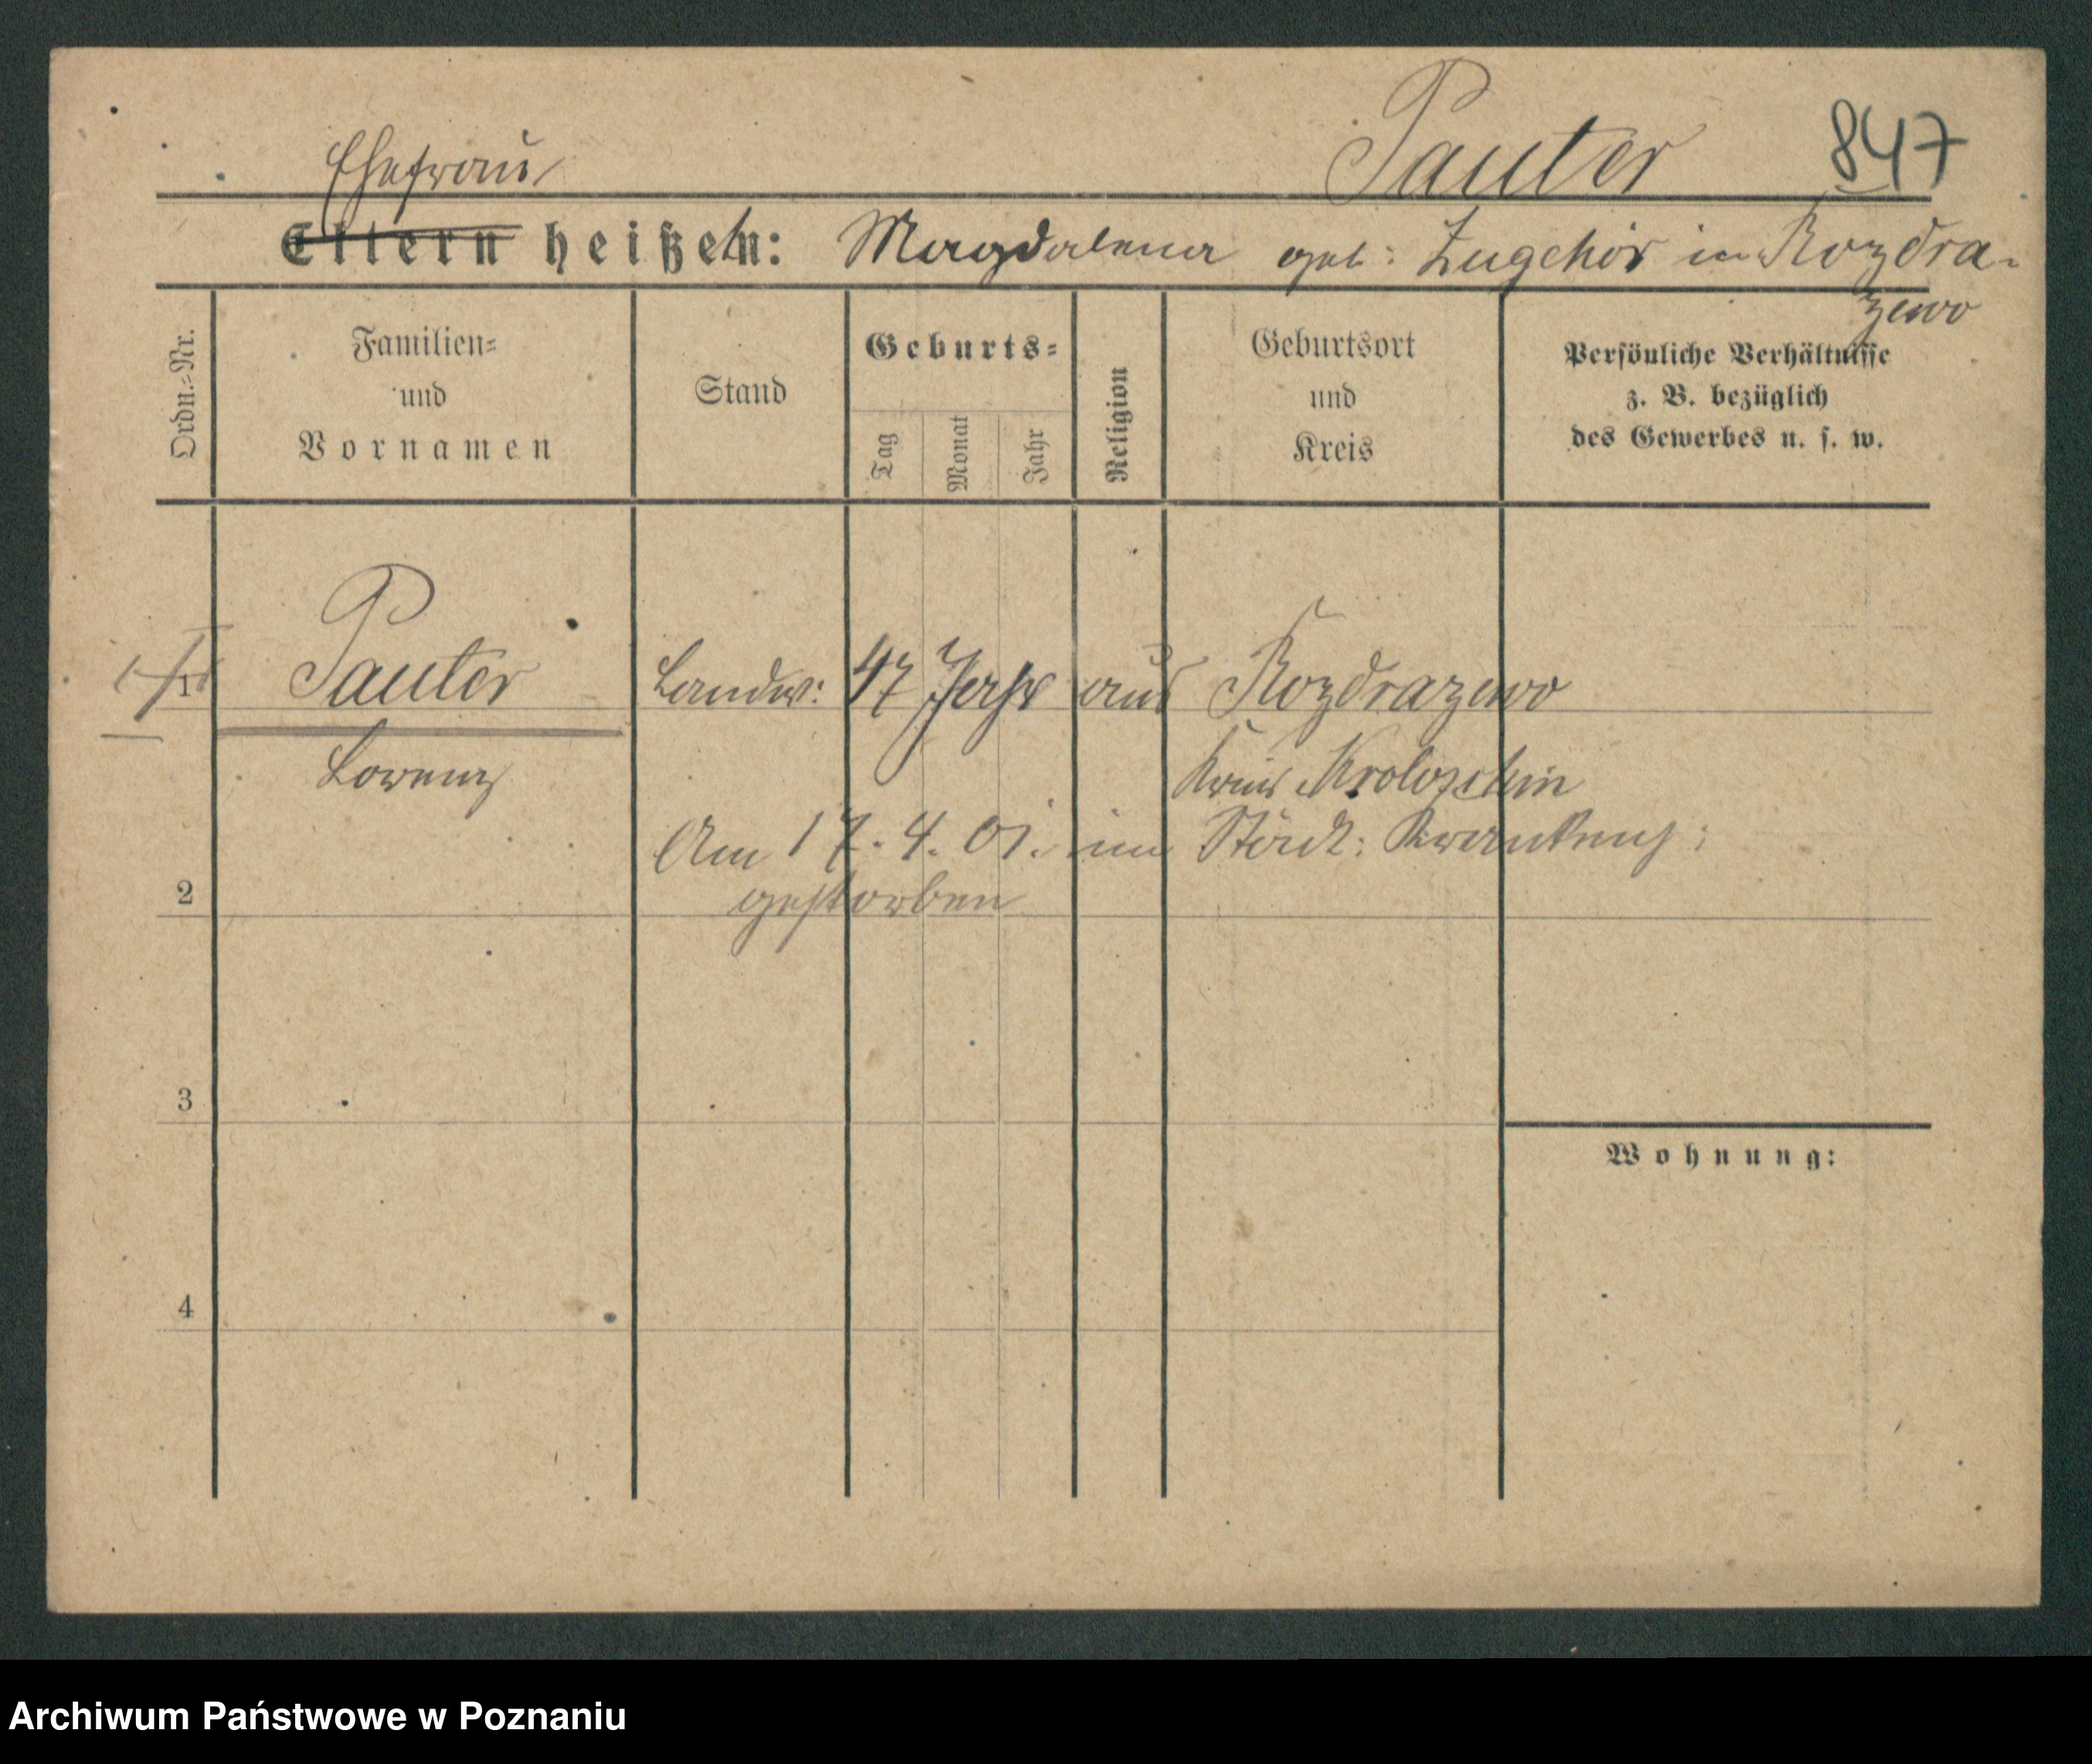 Ehefrau Pauter 847
Eltern heißen: Magdalena geb: Zugehör in Rozdra-
zewo
Ordn.-Nr.
Familien-
und
Vornamen
Stand
Geburts-
Tag Monat Jahr
Religion
Geburtsort
und
Kreis
Persönliche Verhältnisse
z. B. bezüglich
des Gewerbes u. s. w.
1 Pauter Landw: 47 Jahr aus Rozdrazewo
Lorenz Kreis Krotoschin
Am 17. 4. 01. im Städt: Krankenh:
2 gestorben
3
Wohnung:
4
Archiwum Państwowe w Poznaniu